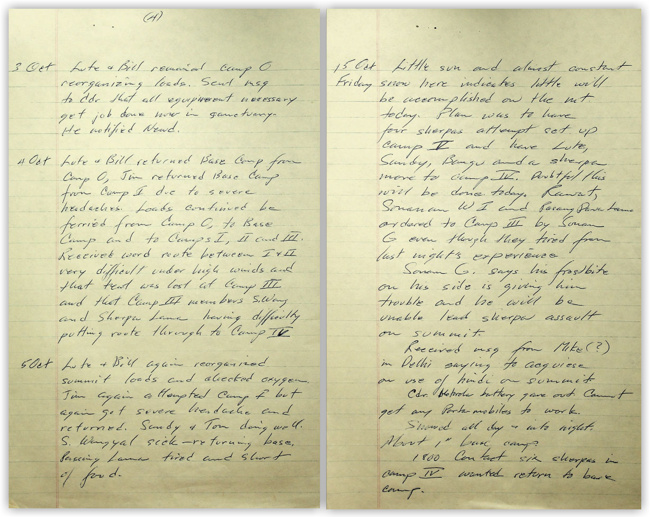 (4)
3 Oct Lute & Bill remained Camp O
reorganizing loads. Sent msg
to Cdr that all equipment necessary
get job done now in sanctuary.
He notified Newd.
4 Oct Lute & Bill returned Base Camp from
Camp O, Jim returned Base Camp
from Camp I due to severe
headaches. Loads continued be
ferried from Camp O, to Base
Camp and to Camps I, II and III.
Received word route between I & II
very difficult under high winds and
that tent was lost at Camp III
and that Camp III members
and Sherpa Lama having difficulty
putting route through to Camp IV
5 Oct Lute & Bill again reorganized
summit loads and checked oxygen
Jim again attempted Camp I but
again got severe headache and
returned. Sandy & Tom doing well.
S. Wangyal sick - returning base.
Passang Lama tired and short
of food.
15 Oct Little sun and almost constant
Friday snow here indicates little will
be accomplished on the mt
today. Plan was to have
four sherpas attempt set up
Camp V and have Lute,
Sandy, Bangu and a sherpa
move to Camp IV. Doubtful this
will be done today. Rawat,
Sonam W I and
ordered to Camp III by Sonam
G even though they tired from
last night's experience
Sonam G. says his frostbite
on his side is giving him
trouble and he will be
unable lead sherpa assault
on summit.
Received msg from Mike (?)
in Delhi saying to acquiese
on use of hindu on summit
Cdr. battery gave out Cannot
get any Portamobiles to work.
Snowed all day & into night.
About 1" base camp
1800 Contact six sherpas in
camp IV wanted return to base
camp.